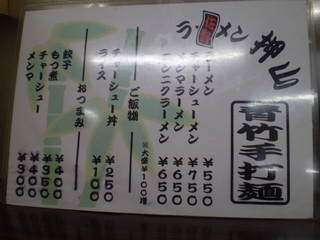 ラーメン
青竹手打麺
ラーメン ¥550
チャーシューメン ¥750
メンマラーメン ¥650
ニンニクラーメン ¥650
※大盛¥100増
ご飯物
チャーシュー丼 ¥250
ライス ¥100
おつまみ
餃子 ¥400
もつ煮 ¥350
チャーシュー ¥400
メンマ ¥300